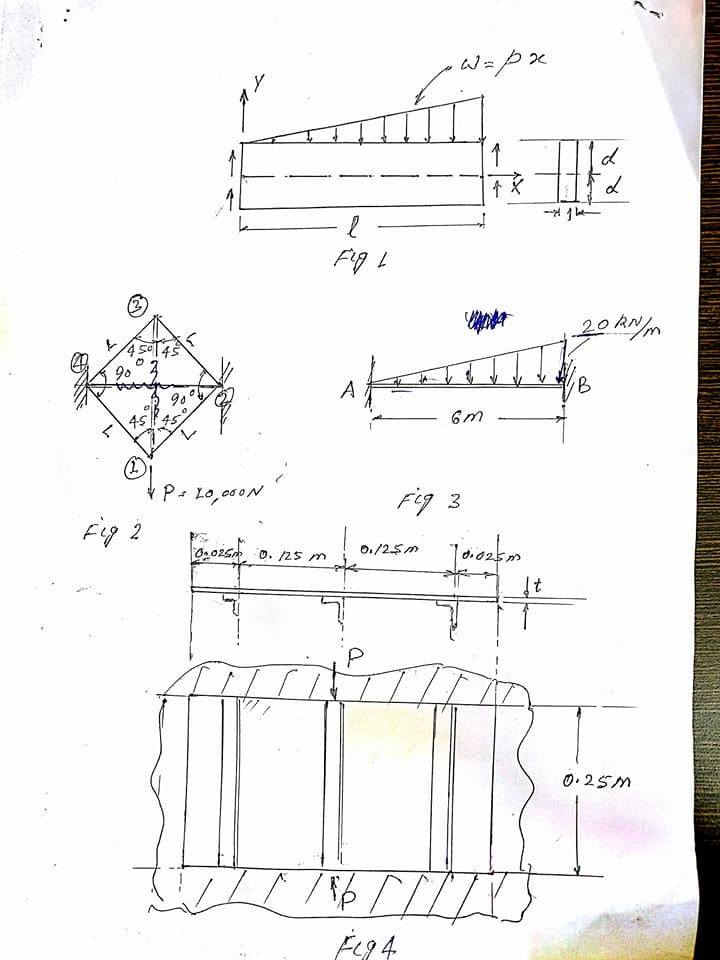 w = px
Y
X
d
d
1
l
Fig 1
③
45° 45
L L
④ 90° 90° ②
45° 45°
L L
①
P = 10,000N
Fig 2
20 kN/m
A B
6m
Fig 3
0.025m 0.125 m 0.125m 0.025m
t
P
0.25m
P
Fig 4